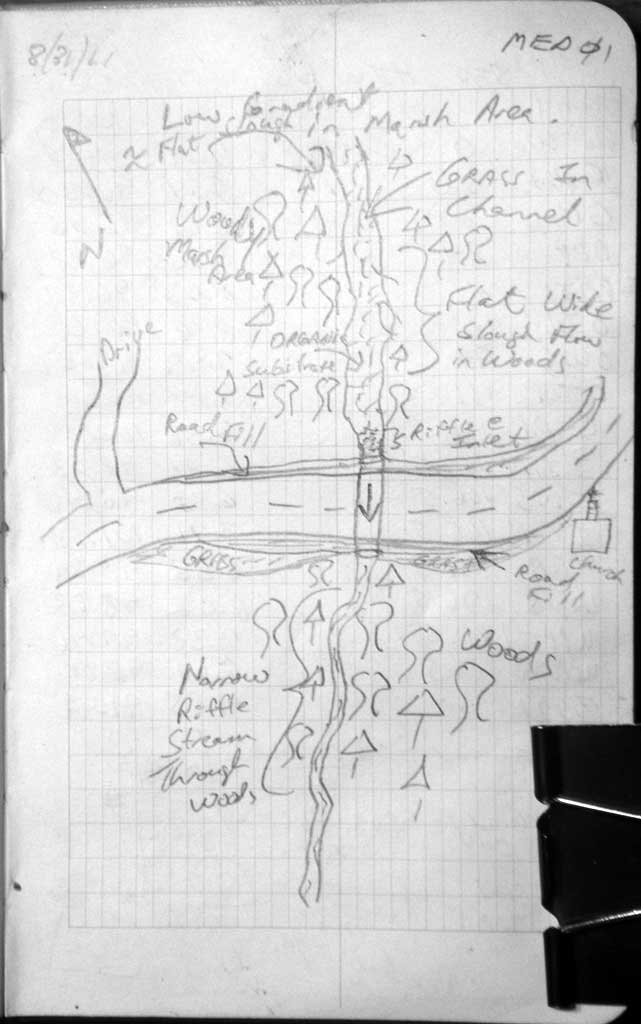 8/31/11
MED01
Low Gradient
Slough in Marsh Area.
≈ Flat
GRASS In
Channel
N
Woody
Marsh
Area
Flat Wide
Slough Flow
in Woods
ORGANIC
Substrate
Drive
Road
Fill
Riffle @
Inlet
GRASS
GRASS
Church
Road
Fill
Woods
Narrow
Riffle
Stream
Through
Woods